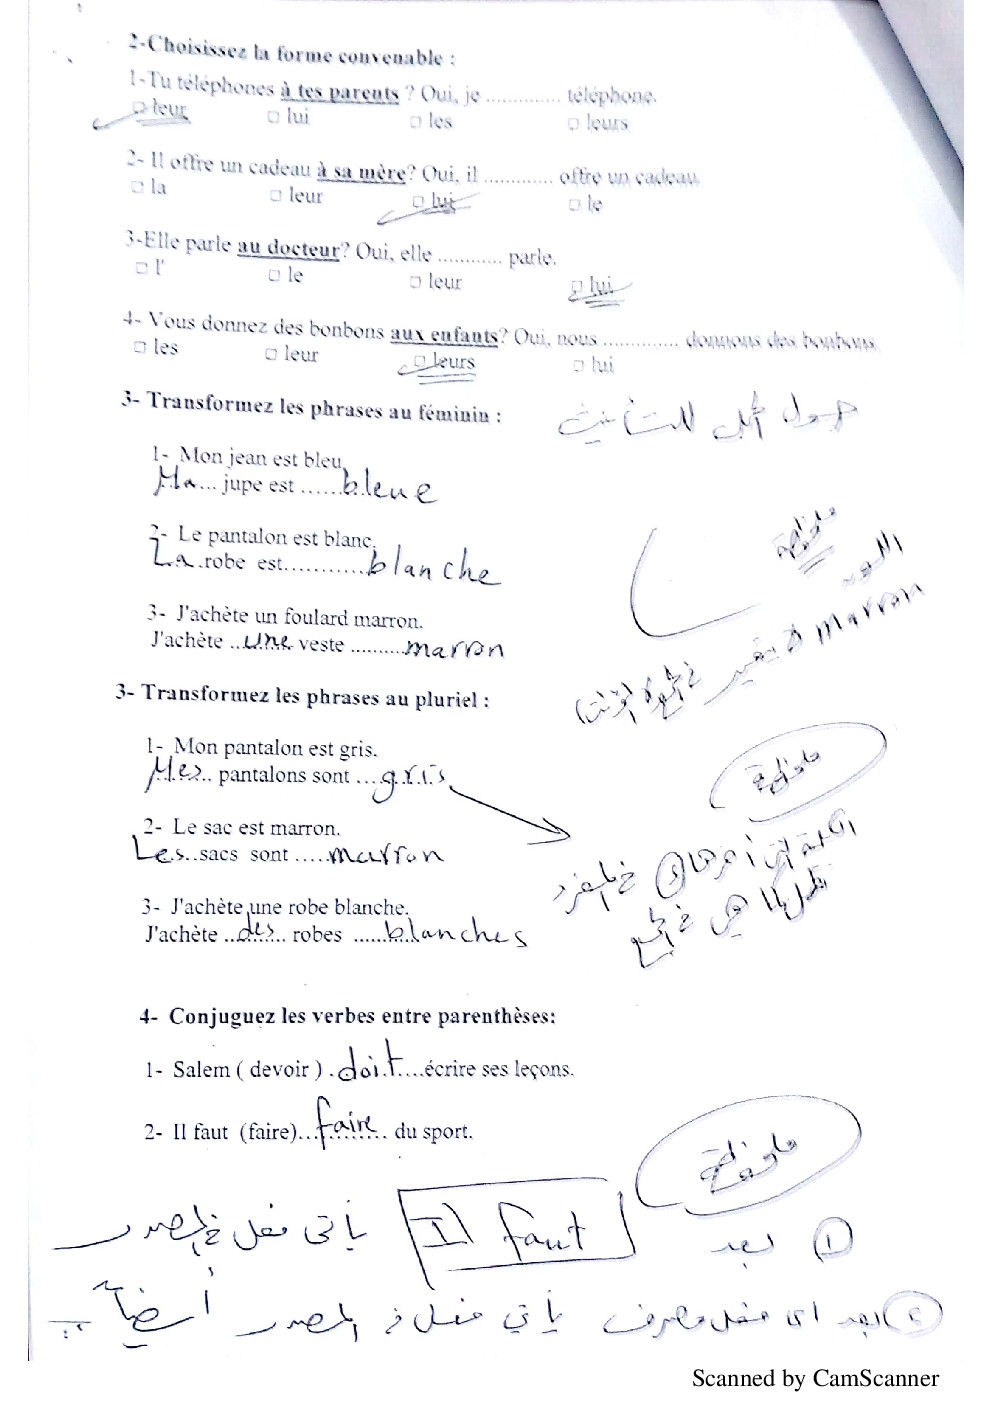 2-Choisissez la forme convenable :
1-Tu téléphones à tes parents ? Oui, je ............. téléphone.
□ leur □ lui □ les □ leurs
2- Il offre un cadeau à sa mère? Oui, il ............ offre un cadeau.
□ la □ leur □ lui □ le
3-Elle parle au docteur? Oui, elle ........... parle.
□ l' □ le □ leur □ lui
4- Vous donnez des bonbons aux enfants? Oui, nous ............. donnons des bonbons.
□ les □ leur □ leurs □ lui
3- Transformez les phrases au féminin :
جدول للتأنيث
1- Mon jean est bleu.
Ma... jupe est ......bleue
2- Le pantalon est blanc.
La.robe est............blanche
ملحوظة
اللون
marron لا يتغير
3- J'achète un foulard marron.
J'achète ..une. veste .........marron
3- Transformez les phrases au pluriel :
1- Mon pantalon est gris.
Mes.. pantalons sont ...gris
ملحوظة
2- Le sac est marron.
Les..sacs sont .....marron
الكلمة التي أخرها s في المفرد
تظل كما هي في الجمع
3- J'achète une robe blanche.
J'achète ..des...... robes ......blanches
4- Conjuguez les verbes entre parenthèses:
1- Salem ( devoir ) .doit....écrire ses leçons.
2- Il faut (faire)...faire...... du sport.
ملحوظة
① بعد Il faut يأتى فعل في المصدر
② بعد اى فعل مصرف يأتي فعل في المصدر أيضاً
Scanned by CamScanner